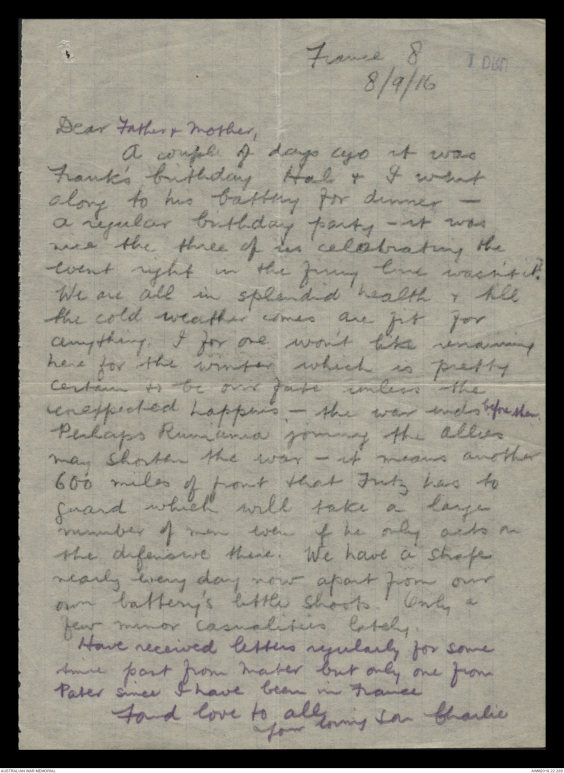 France 8
8/9/16
Dear Father & Mother,
A couple of days ago it was
Frank's birthday Hal & I went
along to his battery for dinner –
a regular birthday party – it was
nice the three of us celebrating the
event right in the firing line wasn't it?
We are all in splendid health & till
the cold weather comes are fit for
anything. I for one won't like remaining
here for the winter which is pretty
certain to be our fate unless the
unexpected happens – the war ends before then.
Perhaps Rumania joining the allies
may shorten the war – it means another
600 miles of front that Fritz has to
guard which will take a large
number of men even if he only acts on
the defensive there. We have a strafe
nearly every day now apart from our
own battery's little shoots. Only a
few minor casualities lately.
Have received letters regularly for some
time past from Mater but only one from
Pater since I have been in France
Fond love to all
Your loving son Charlie
AUSTRALIAN WAR MEMORIAL